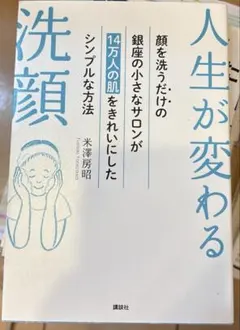 人生が変わる
洗顔
顔を洗うだけの
銀座の小さなサロンが
14万人の肌をきれいにした
シンプルな方法
米澤房昭
講談社